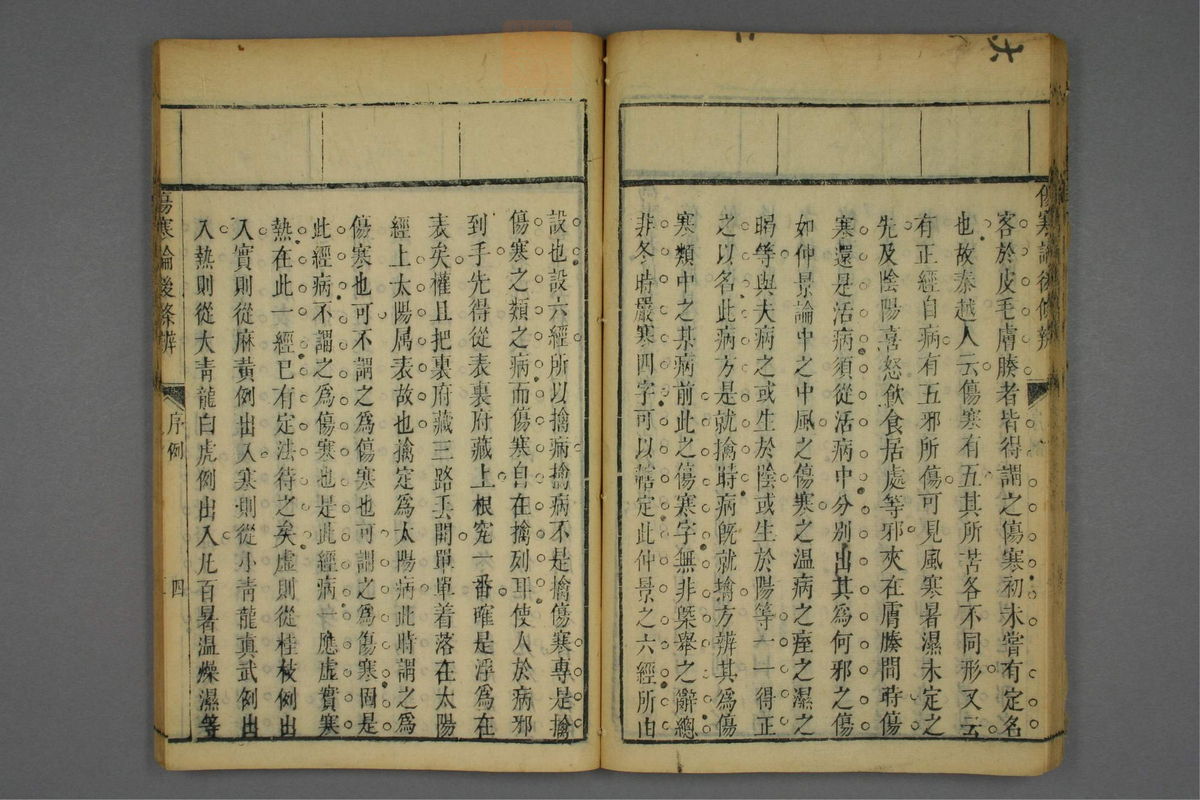 傷寒論後條辨
客於皮毛膚腠者皆得謂之傷寒初未嘗有定名
也故秦越人云傷寒有五其所苦各不同形又云
有正經自病有五邪所傷可見風寒暑濕未定之
先及陰陽喜怒飲食居處等邪夾在膚腠間時傷
寒還是活病須從活病中分別出其爲何邪之傷
如仲景論中之中風之傷寒之温病之痙之濕之
暍等與夫病之或生於陰或生於陽等一一得正
之以名此病方是就擒時病旣就擒方辨其爲傷
寒類中之某病前此之傷寒字無非槩舉之辭總
非冬時嚴寒四字可以轄定此仲景之六經所由
設也設六經所以擒病擒病不是擒傷寒專是擒
傷寒之類之病而傷寒自在擒列耳使人於病邪
到手先得從表裏府藏上根究一番確是浮爲在
表矣權且把裏府藏三路丟開單單着落在太陽
經上太陽属表故也擒定爲太陽病此時謂之爲
傷寒也可不謂之爲傷寒也可謂之爲傷寒固是
此經病不謂之爲傷寒也是此經病一應虛實寒
熱在此一經已有定法待之矣虛則從桂枝例出
入實則從麻黃例出入寒則從小青龍眞武例出
入熱則從大青龍白虎例出入凢百暑温燥濕等
傷寒論後條辨
序例
四